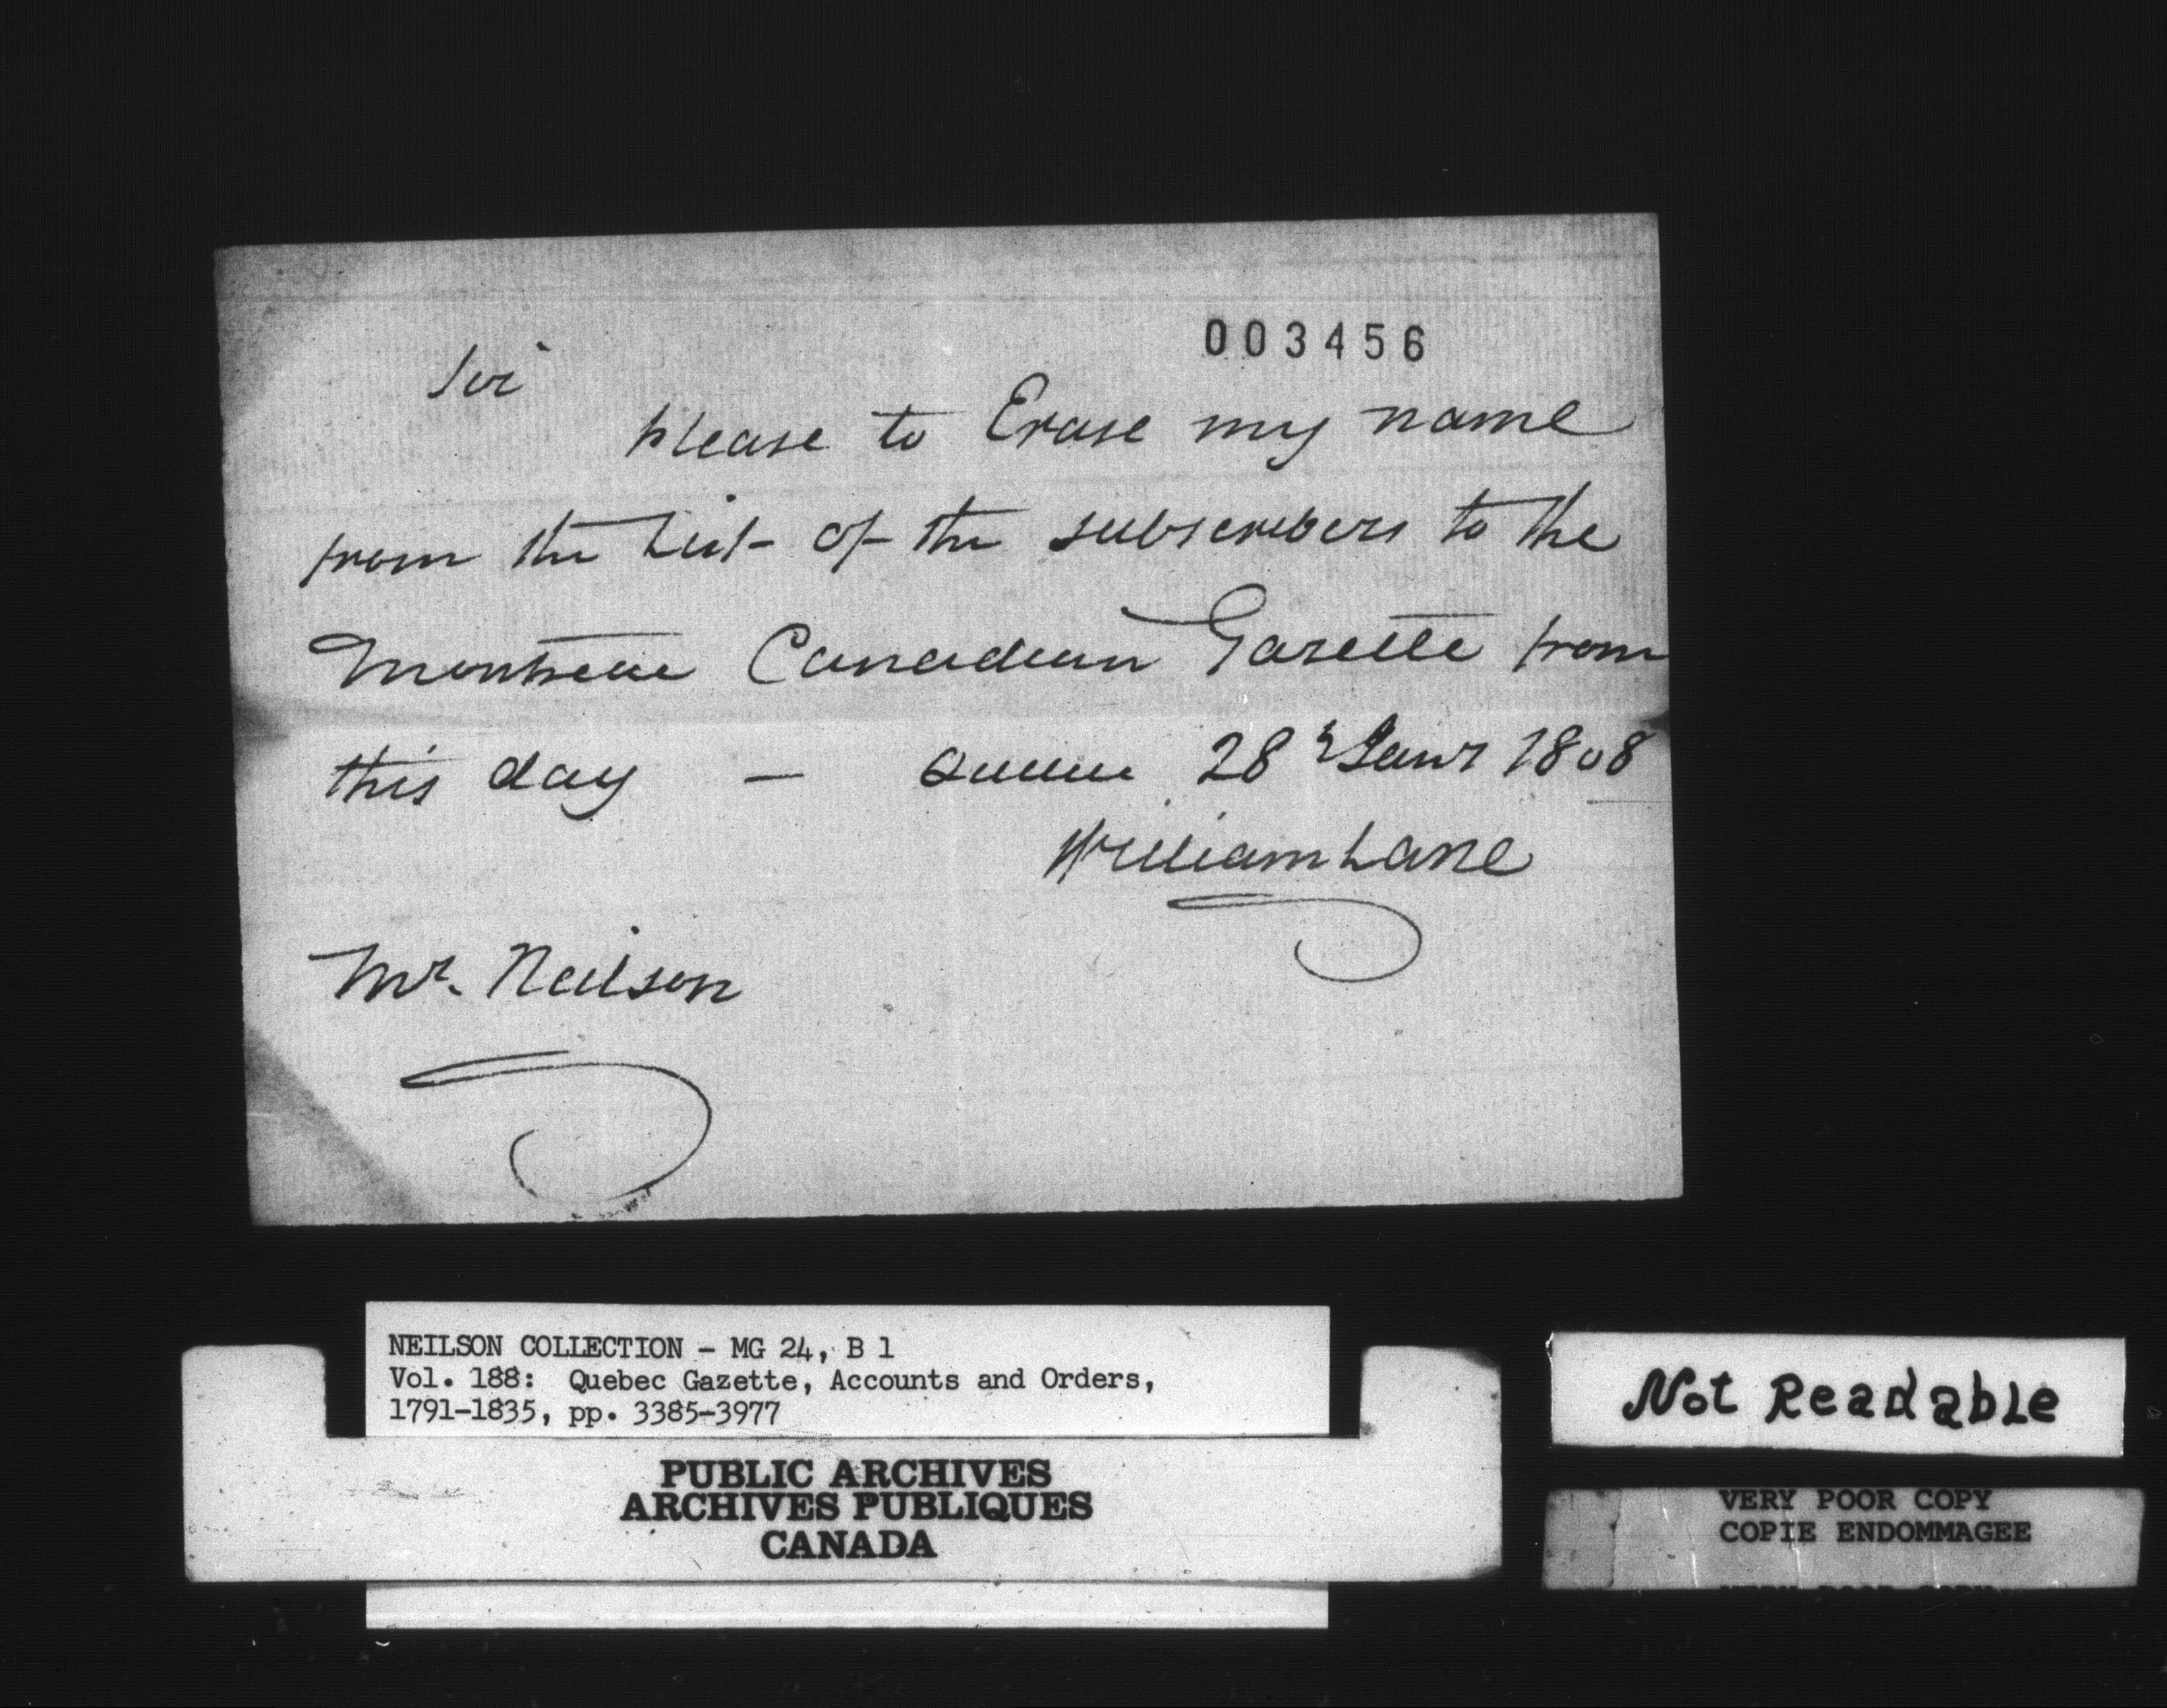 003456
Sir
please to Erase my name
from the List of the subscribers to the
Montreal Canadian Gazette from
this day — 28 Janr 1808
William Lane
Mr. Neilson
NEILSON COLLECTION - MG 24, B 1
Vol. 188: Quebec Gazette, Accounts and Orders,
1791-1835, pp. 3385-3977
PUBLIC ARCHIVES
ARCHIVES PUBLIQUES
CANADA
Not Readable
VERY POOR COPY
COPIE ENDOMMAGEE